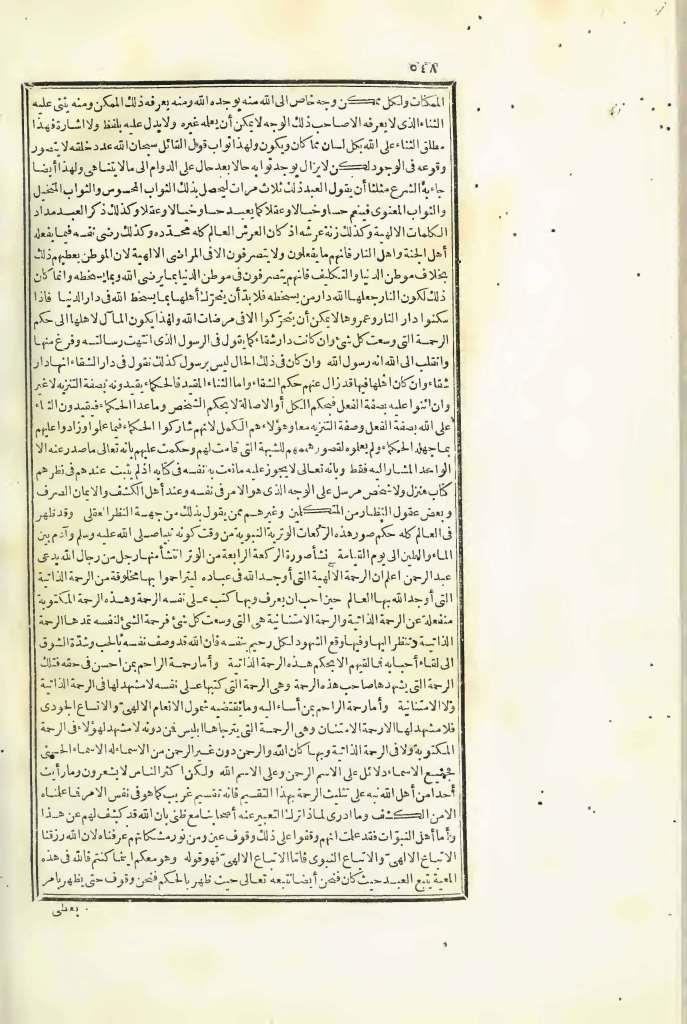 ٥٤٨
الممكنات ولكل ممكن وجه خاص الى الله منه يوجده الله ومنه يعرفه ذلك الممكن ومنه يثنى عليه
الثناء الذى لا يعرفه الاصاحب ذلك الوجه لا يمكن أن يعلمه غيره ولا يدل عليه بلفظ ولا اشارة فهذا
مطلق الثناء على الله بكل لسان مما كان ويكون ولهذا ثواب قول القائل سبحان الله عدد خلقه لا يتصور
وقوعه فى الوجود لكن لا يزال يوجد ثوابه حالا بعد حال على الدوام الى مالا يتناهى ولهذا أيضا
جاء به الشرع مثلثا أن يقول العبد ذلك ثلاث مرات ليحصل بذلك الثواب المحسوس والثواب المتخيل
والثواب المعنوى فينعم حسا وخيالا وعقلا كما يعبد حسا وخيالا وعقلا وكذلك ذكر العبد مداد
الكلمات الالهية وكذلك زنة عرشه اذ كان العرش العالم كله محدده وكذلك رضى نفسه فيما يفعله
أهل الجنة واهل النار فانهم ما يفعلون ولا يتصرفون الا فى المراضى الالهية لان الموطن يعطيهم ذلك
بخلاف موطن الدنيا والتكليف فانهم يتصرفون فى موطن الدنيا بما يرضى الله وبما يسخطه وانما كان
ذلك لكون النار جعلها الله دار من يسخطه فلا بد أن يتحرك أهلها بما يسخط الله فى دار الدنيا فاذا
سكنوا دار النار وعمروها لا يمكن أن يتحركوا الا فى مرضات الله ولهذا يكون المآل لاهلها الى حكم
الرحمة التى وسعت كل شئ وان كانت دار شقاء كما يقول فى الرسول الذى انتهت رسالته وفرغ منها
وانقلب الى الله انه رسول الله وان كان فى ذلك الحال ليس برسول كذلك نقول فى دار الشقاء انها دار
شقاء وان كان اهلها فيها قد زال عنهم حكم الشقاء واما الثناء المقيد فالحكماء يقيدونه بصفة التنزيه لا غير
وان اثنوا عليه بصفة الفعل فبحكم الكل أو الاصالة لا بحكم الشخص وما عدا الحكماء فيقيدون الثناء
على الله بصفة الفعل وصفة التنزيه معا وهؤلاء هم الكمل لانهم شاركوا الحكماء فيما علموا وزادوا عليهم
بما جهله الحكماء ولم يعلموه لقصور هممهم للشبهة التى قامت لهم وحكمت عليهم بانه تعالى ما صدر عنه الا
الواحد المشار اليه فقط وبانه تعالى لا يجوز عليه ما نعت به نفسه فى كتابه اذ لم يثبت عندهم فى نظرهم
كتاب منزل ولا شخص مرسل على الوجه الذى هو الامر فى نفسه وعند أهل الكشف والايمان الصرف
وبعض عقول النظار من المتكلمين وغيرهم ممن يقول بذلك من جهة النظر العقلى وقد ظهر
فى العالم كله حكم صور هذه الركعات الوترية النبوية من وقت كونه نبيا صلى الله عليه وسلم وآدم بين
الماء والطين الى يوم القيامة نشأ صورة الركعة الرابعة من الوتر انتشأ منها رجل من رجال الله يدعى
عبد الرحمن اعلم ان الرحمة الالهية التى أوجد الله فى عباده ليتراحموا بها مخلوقة من الرحمة الذاتية
التى أوجد الله بها العالم حين احب ان يعرف وبها كتب على نفسه الرحمة وهذه الرحمة المكتوبة
منفعلة عن الرحمة الذاتية والرحمة الامتنانية هى التى وسعت كل شئ فرحمة الشئ لنفسه تمدها الرحمة
الذاتية وتنظر اليها وفيها وقع الشهود لكل رحيم بنفسه فان الله قد وصف نفسه بالحب وشدة الشوق
الى لقاء أحبابه فما لقيهم الا بحكم هذه الرحمة الذاتية وأما رحمة الراحم بمن احسن فى حقه فتلك
الرحمة التى يشهدها صاحب هذه الرحمة وهى الرحمة التى كتبها على نفسه لا مشهد لها فى الرحمة الذاتية
ولا الامتنانية وأما رحمة الراحم بمن أساء اليه وما يقتضيه شمول الانعام الالهى والاتساع الجودى
فلا مشهد لها الا رحمة الامتنان وهى الرحمة التى يترجاها ابليس فمن دونه لا مشهد لهؤلاء فى الرحمة
المكتوبة ولا فى الرحمة الذاتية وبها كان الله والرحمن دون غير الرحمن من الاسماء له الاسماء الحسنى
فجميع الاسماء دلائل على الاسم الرحمن وعلى الاسم الله ولكن اكثر الناس لا يشعرون وما رأيت
أحدا من أهل الله نبه على تثليث الرحمة بهذا التقسيم فانه تقسيم غريب كما هو فى نفس الامر فما علمناه
الا من الكشف وما ادرى لماذا ترك التعبير عنه أصحابنا مع ظنى بان الله قد كشف لهم عن هذا
وأما أهل النبوات فقد علمت انهم وقفوا على ذلك وقوف عين ومن نور مشكاتهم عرفناه لان الله رزقنا
الاتباع الالهى والاتباع النبوى فاما الاتباع الالهى فهو قوله وهو معكم اينما كنتم فالله فى هذه
المعية يتبع العبد حيث كان فنحن أيضا نتبعه تعالى حيث ظهر بالحكم فنحن وقوف حتى يظهر بامر
يعطى